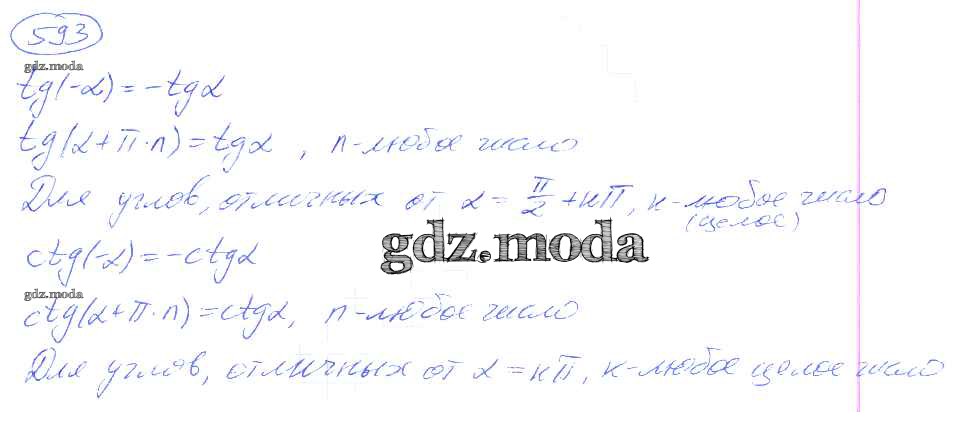 593
gdz.moda
tg(-α) = -tgα
tg(α+π·n) = tgα, n-любое число
Для углов, отличных от α = π/2 + кπ, к-любое число
(целое)
gdz.moda
ctg(-α) = -ctgα
gdz.moda
ctg(α+π·n) = ctgα, n-любое число
Для углов, отличных от α = кπ, к-любое целое число